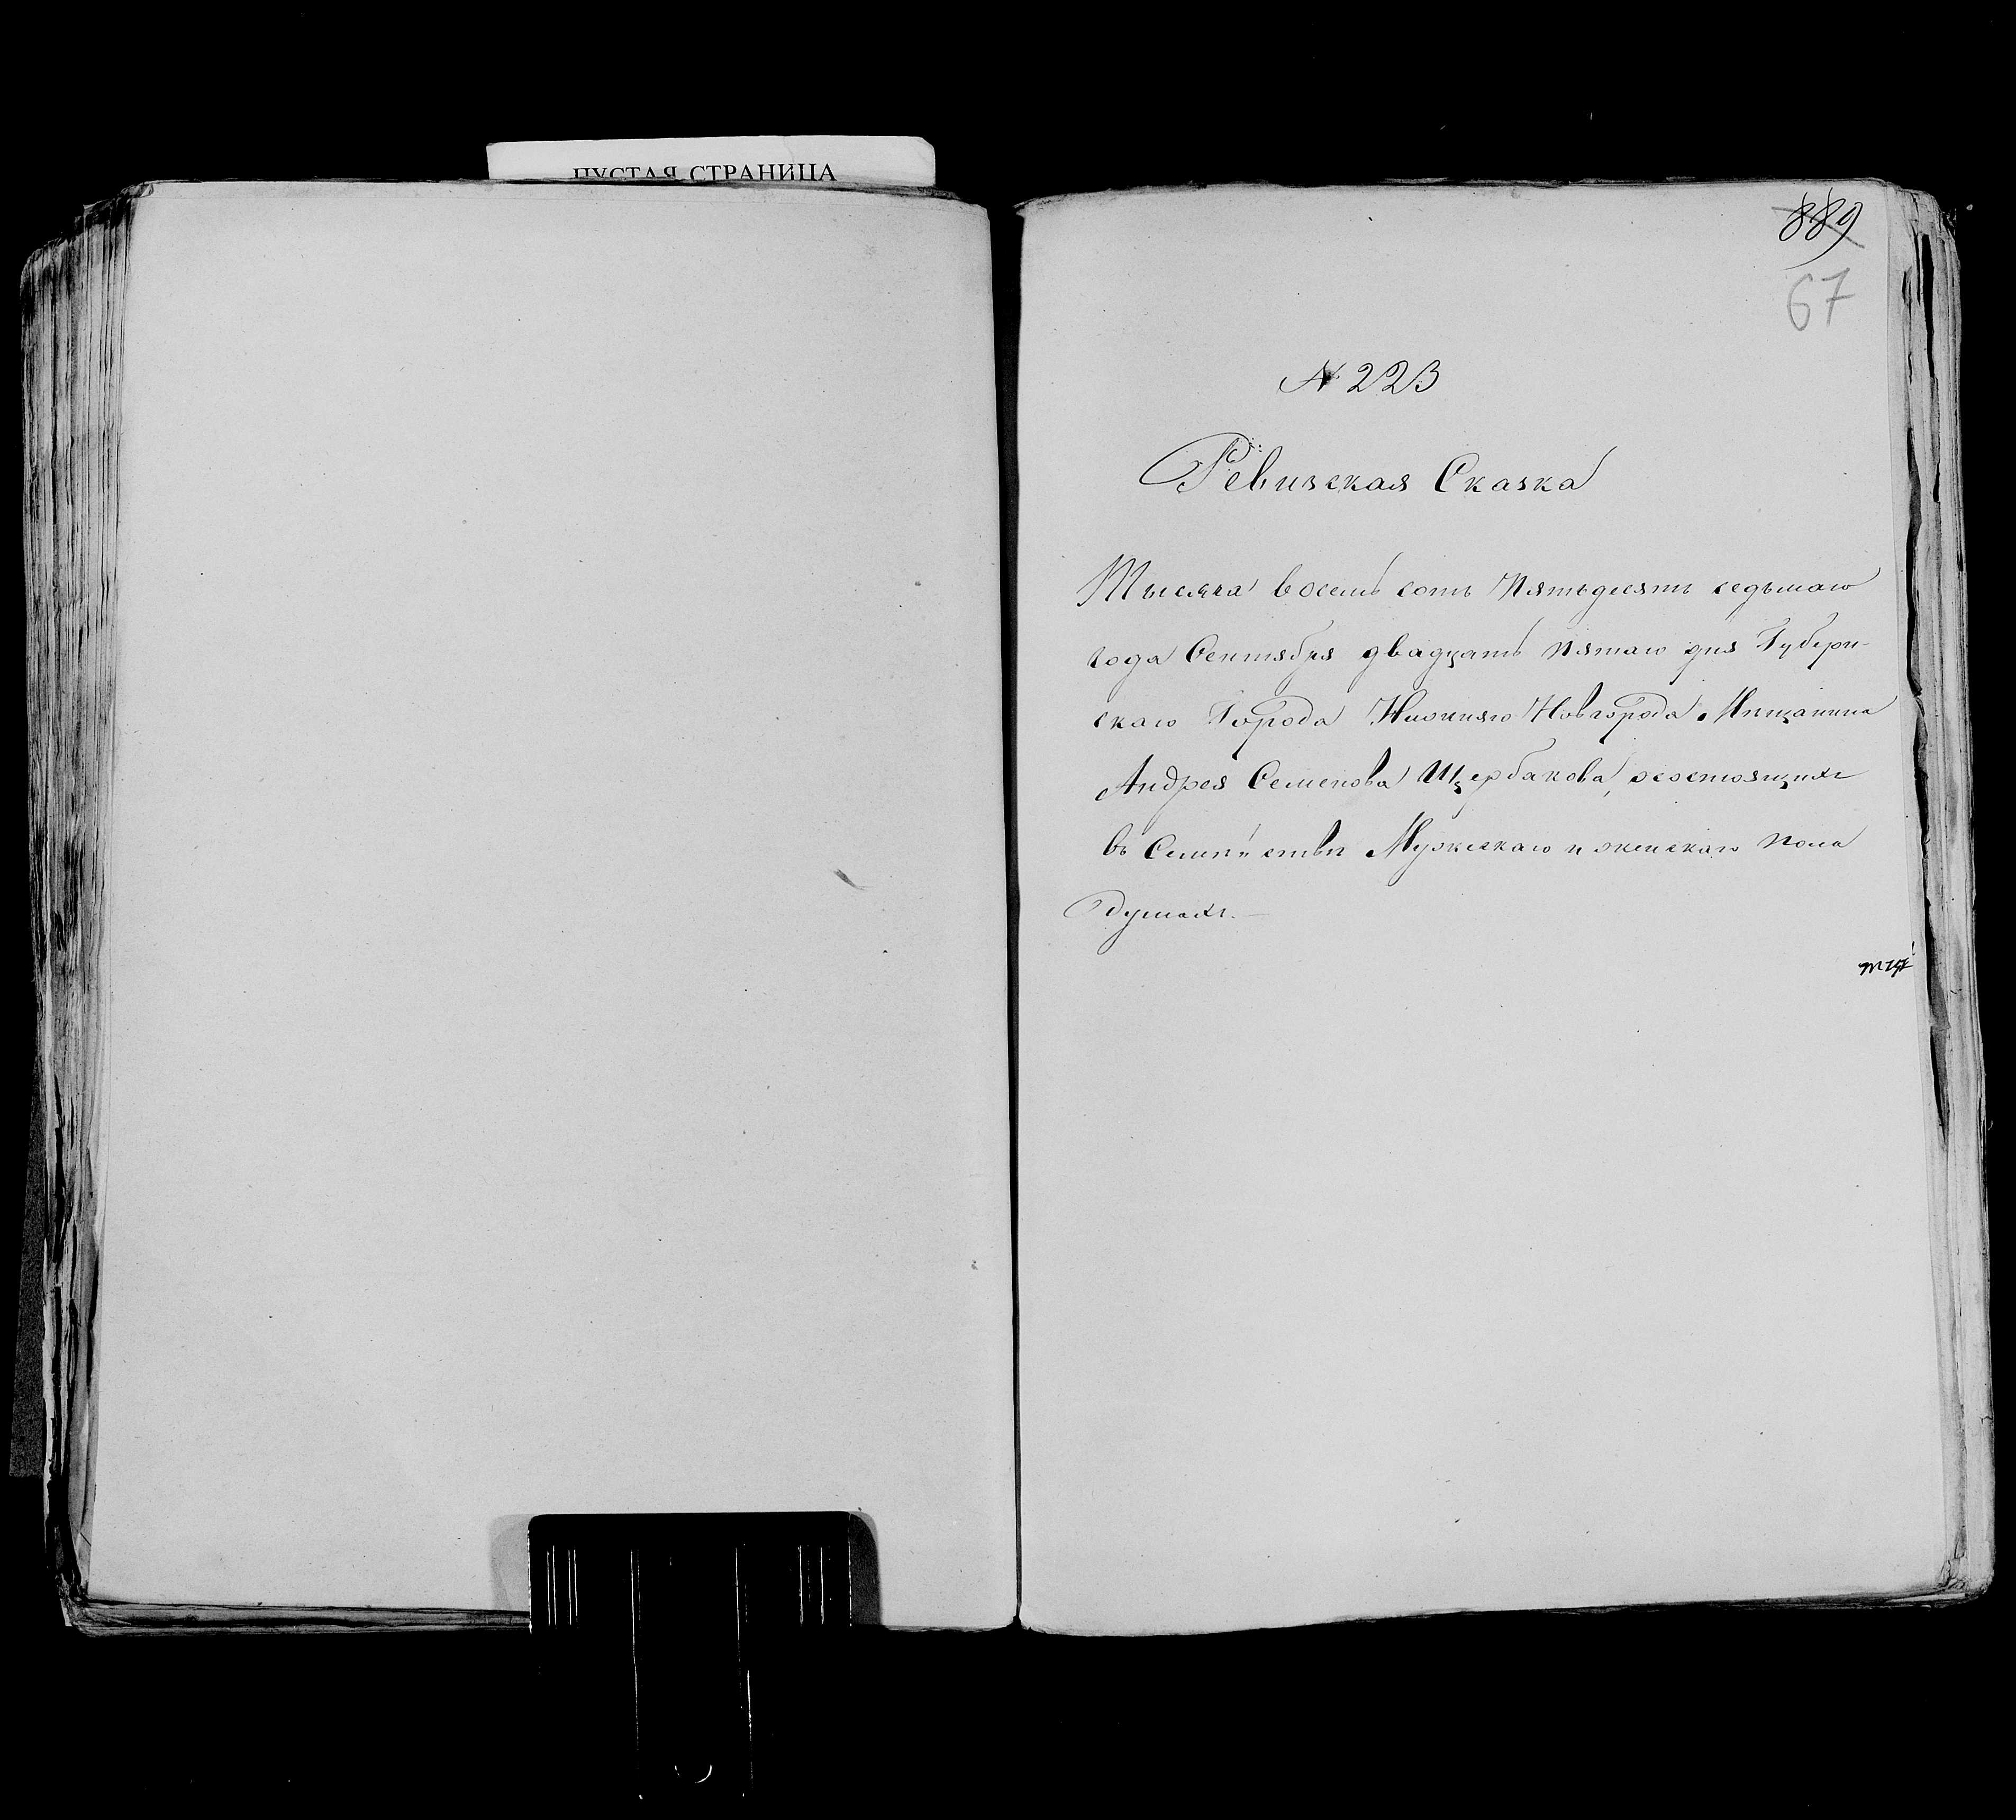 ПУСТАЯ СТРАНИЦА
889
67
№ 223
Ревизская Сказка
Тысяча восемь сотъ Пятьдесятъ седьмаго
года Сентября двадцать пятаго дня Губерн-
скаго Города Нижняго Новгорода Мѣщанина
Андрея Семенова Щербакова, о состоящихъ
въ Семѣйствѣ Мужескаго и женскаго пола
душахъ.